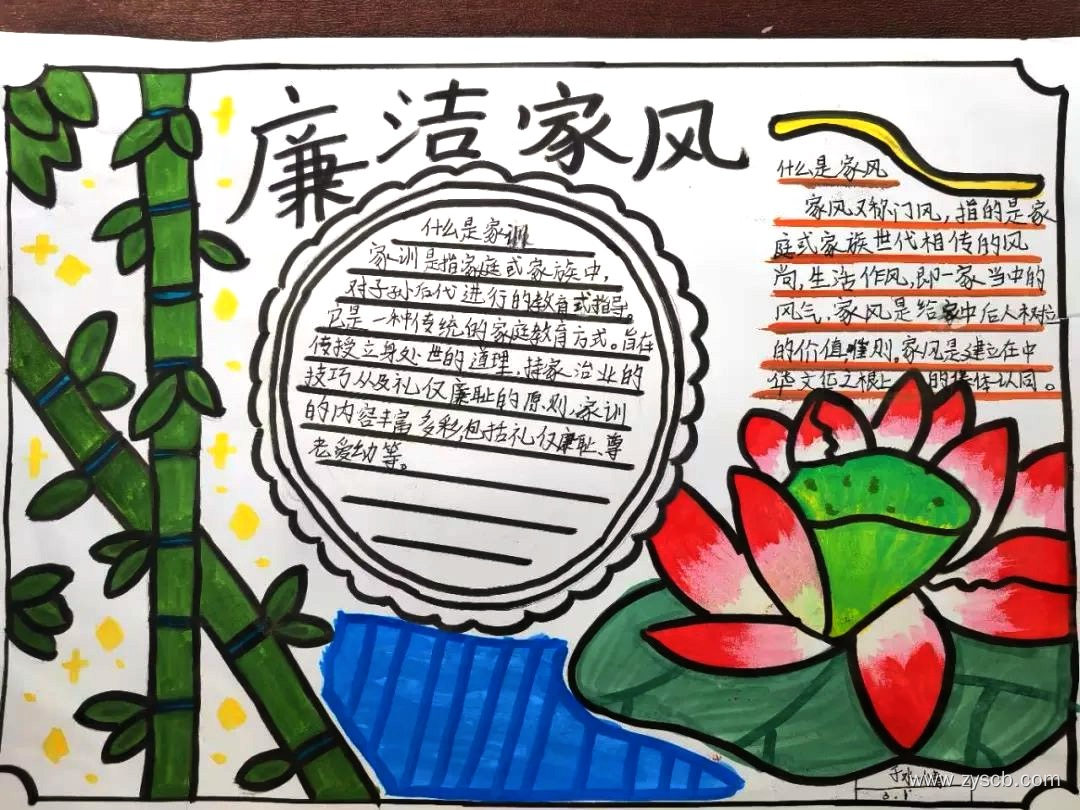 廉洁家风
什么是家训
家训是指家庭或家族中,
对子孙后代进行的教育或指导。
它是一种传统的家庭教育方式。旨在
传授立身处世的道理、持家治业的
技巧以及礼仪廉耻的原则,家训
的内容丰富多彩,包括礼仪廉耻、尊
老爱幼等。
什么是家风
家风又称门风,指的是家
庭或家族世代相传的风
尚,生活作风,即一家当中的
风气,家风是给家中后人树立
的价值准则。家风是建立在中
华文化之根上 的集体认同。
www.zyscb.com